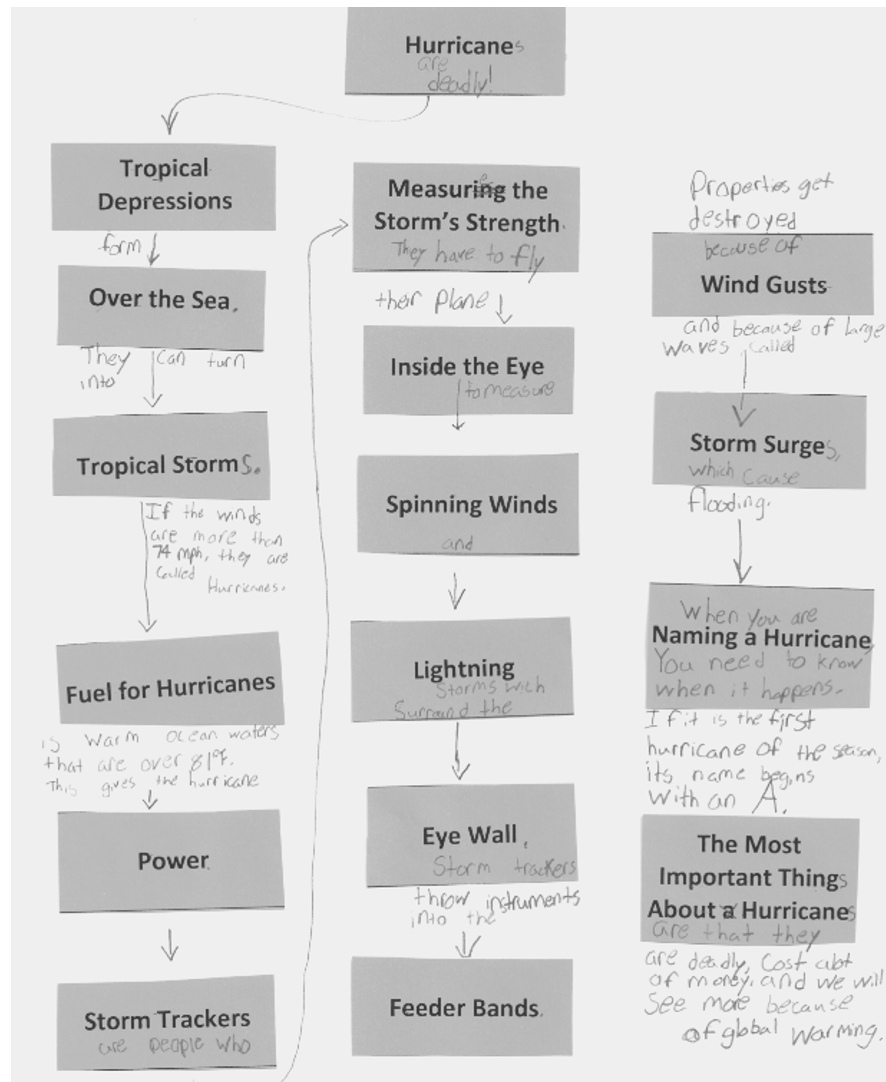 Hurricanes
are
deadly!
Tropical
Depressions
form
Over the Sea.
They can turn
into
Tropical Storms.
If the winds
are more than
74 mph, they are
called
Hurricanes.
Fuel for Hurricanes
is warm ocean waters
that are over 81°F.
This gives the hurricane
Power.
Storm Trackers
are people who
Measuring the
Storm's Strength.
They have to fly
their plane
Inside the Eye
to measure
Spinning Winds
and
Lightning
Storms wich
Surround the
Eye Wall.
Storm trackers
throw instruments
into the
Feeder Bands.
Properties get
destroyed
because of
Wind Gusts
and because of large
waves called
Storm Surges,
which cause
flooding.
When you are
Naming a Hurricane,
You need to know
when it happens.
If it is the first
hurricane of the season,
its name begins
with an A.
The Most
Important Things
About a Hurricanes
are that they
are deadly, cost alot
of money, and we will
see more because
of global warming.